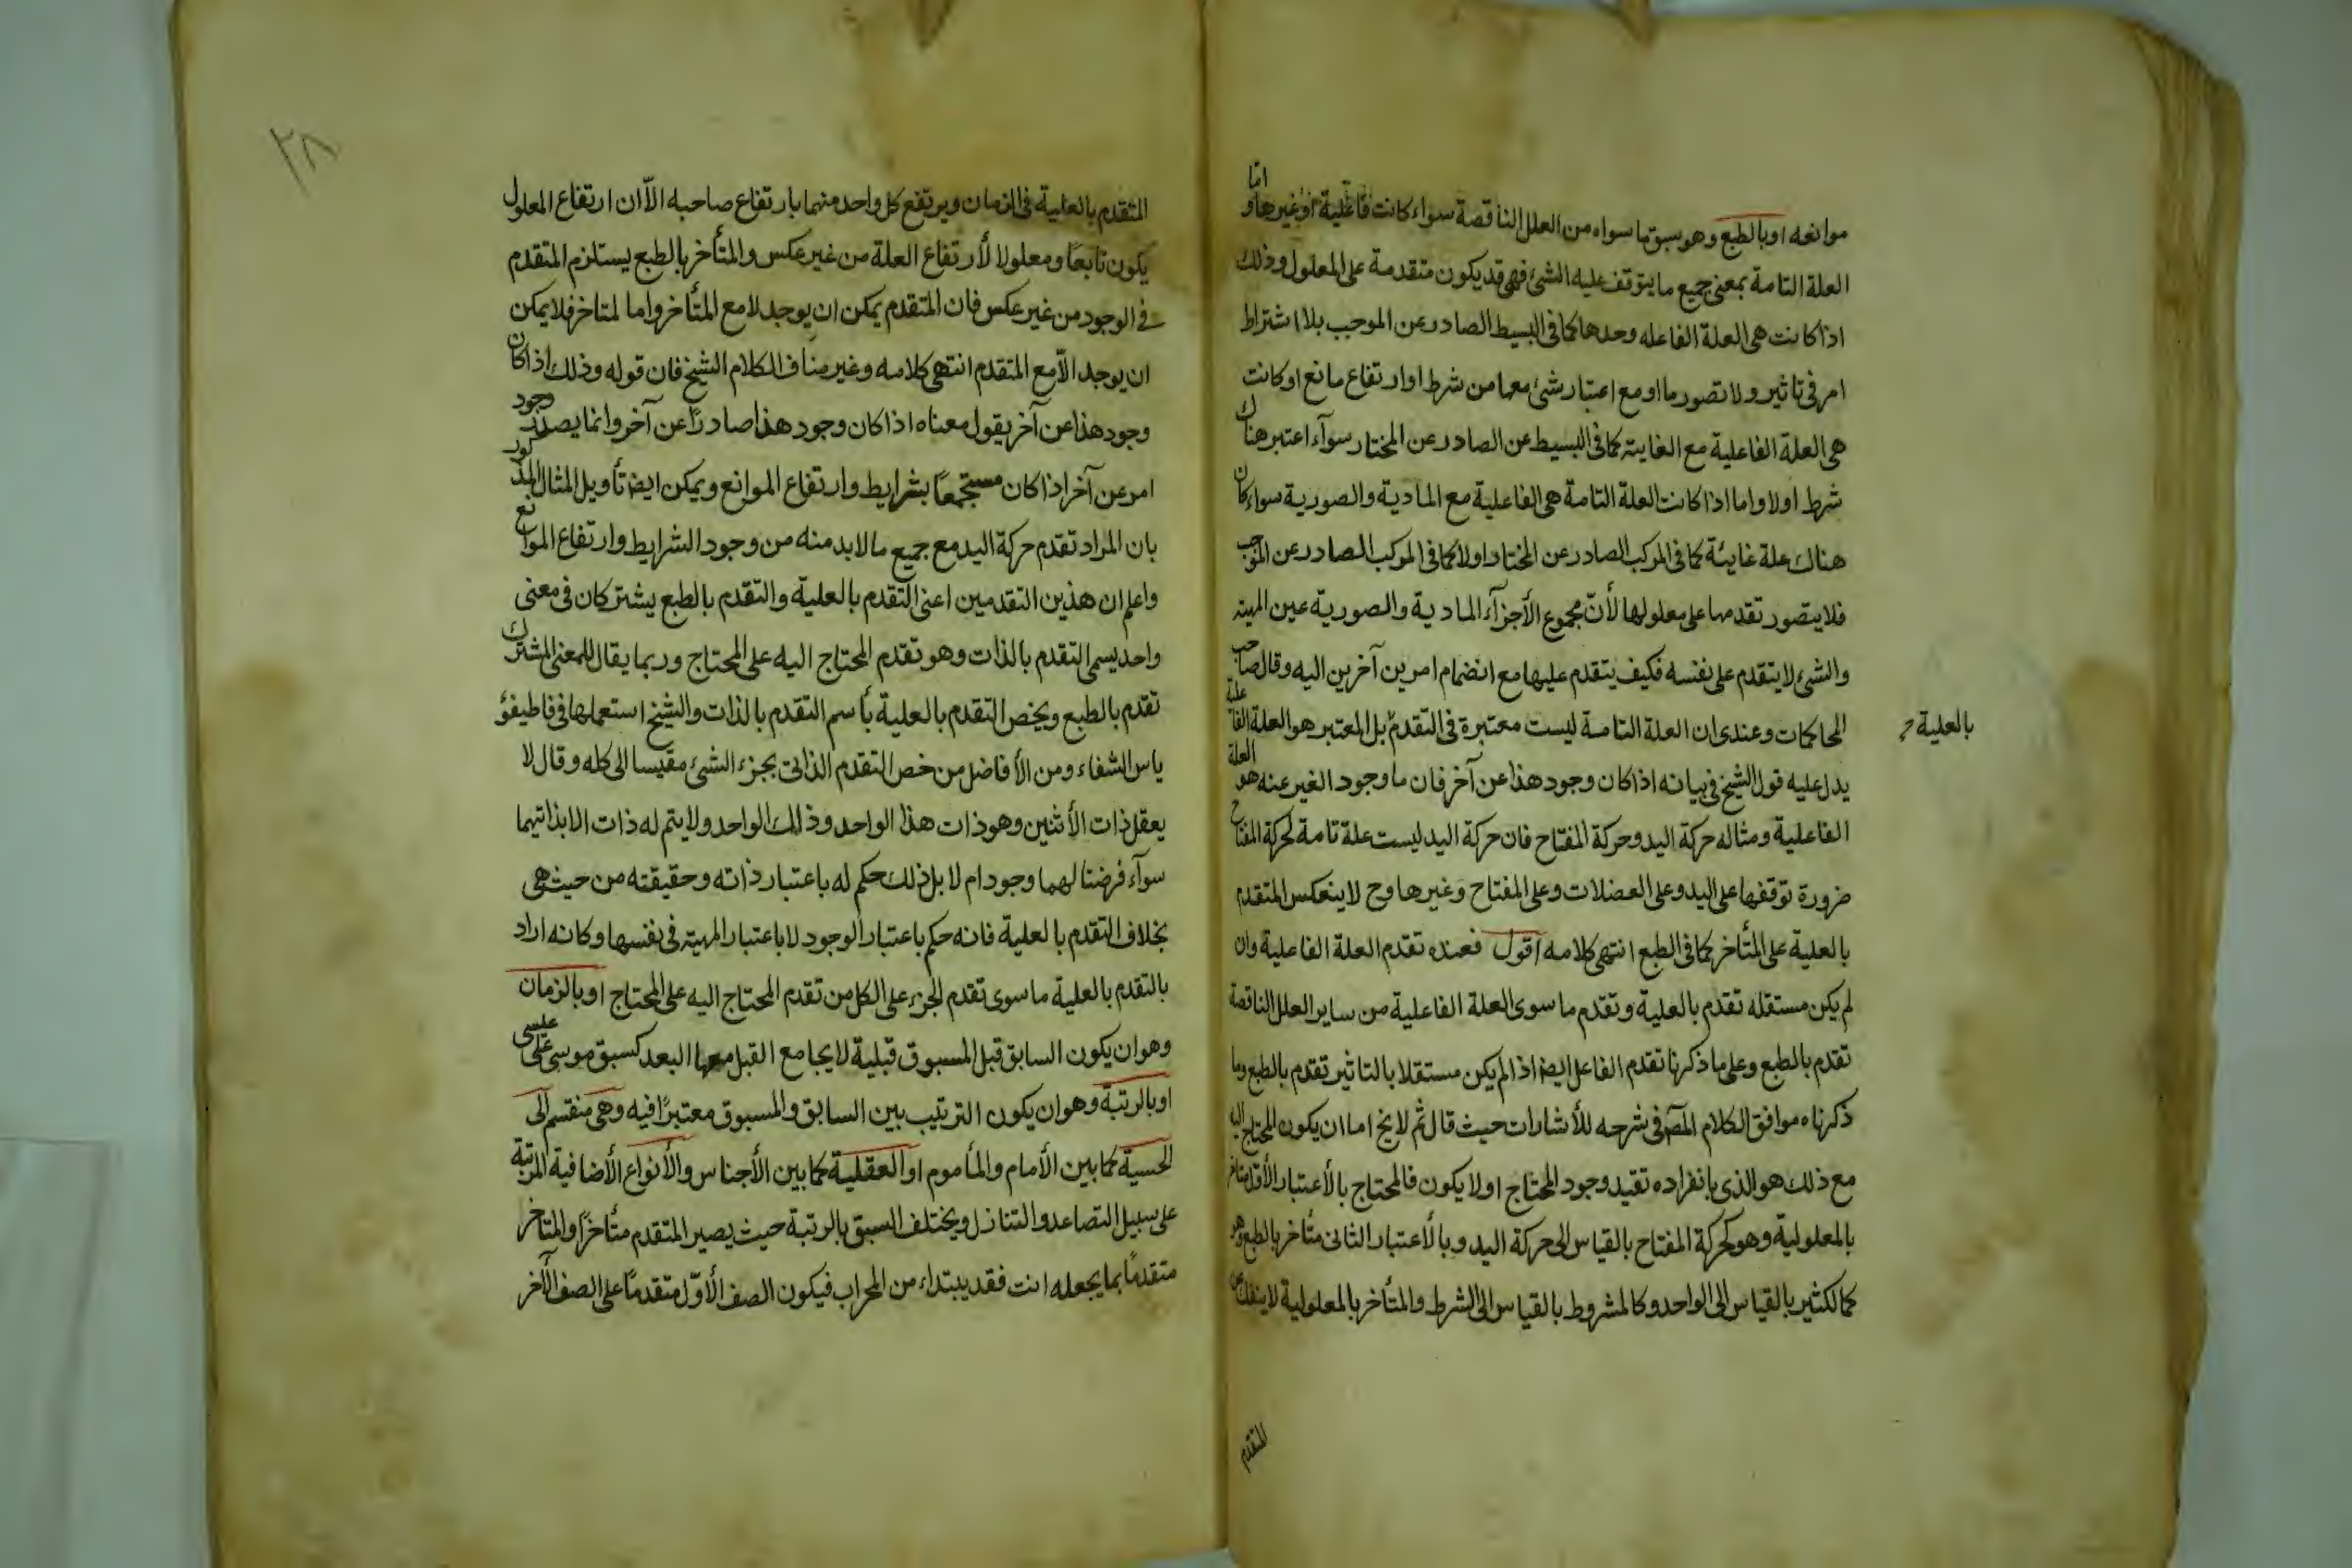 موانعه او بالطبع وهو سبق ما سواه من العلل الناقصة سواء كانت فاعلية او غيرها واما
العلة التامة بمعنى جميع ما يتوقف عليه الشئ فهى قد يكون متقدمة على المعلول وذلك
اذا كانت هى العلة الفاعله وحدها كما فى البسيط الصادر عن الموجب بلا اشتراط
امر فى تاثير ولا تصور ما او مع اعتبار شئ معها من شرط او ارتفاع مانع او كانت
هى العلة الفاعلية مع الغايته كما فى البسيط عن الصادر عن المختار سوآء اعتبر هناك
شرط اولا واما اذا كانت العلة التامة هى الفاعلية مع المادية والصورية سواء كان
هناك علة غايئة كما فى المركب الصادر عن المختار اولا كما فى المركب الصادر عن الموجب
فلا يتصور تقدمها على معلولها لأنّ مجموع الأجزآء المادية والصورية عين المهية
والشئ لا يتقدم على نفسه فكيف يتقدم عليها مع انضمام امرين آخرين اليه وقال صاحب
المحاكمات وعندى ان العلة التامة ليست معتبرة فى التقدم بل المعتبر هو العلة الفاعلية
بالعلية
يدل عليه قول الشيخ فى بيانه اذا كان وجود هذا عن آخر فان ما وجود الغير عنه هو العلة
الفاعلية ومثاله حركة اليد وحركة المفتاح فان حركة اليد ليست علة تامة لحركة المفتاح
ضرورة توقفها على اليد وعلى العضلات وعلى المفتاح وغيرها وح لا ينعكس المتقدم
بالعلية على المتأخر كما فى الطبع انتهى كلامه اقول فعنده تقدم العلة الفاعلية وان
لم يكن مستقله تقدم بالعلية وتقدم ما سوى العلة الفاعلية من ساير العلل الناقصة
تقدم بالطبع وعلى ما ذكرنا تقدم الفاعل ايضا اذا لم يكن مستقلا بالتاثير تقدم بالطبع وما
ذكرناه موافق الكلام المصـ فى شرحه للأشارات حيث قال ثم لا يخ اما ان يكون المحتاج اليه
مع ذلك هو الذى بانفراده تقيد وجود المحتاج اولا يكون فالمحتاج بالأعتبار الأوّل متاخر
بالمعلولية وهو كحركة المفتاح بالقياس الى حركة اليد وبالأعتبار الثانى متأخر بالطبع وهو
كما لكثير بالقياس الى الواحد وكالمشروط بالقياس الى الشرط والمتأخر بالمعلولية لا ينفك عن
المتقدم
٢٨
المتقدم بالعلية فى الزمان ويرتفع كل واحد منهما بارتفاع صاحبه الاّ ان ارتفاع المعلول
يكون تابعاً ومعلولا لأرتفاع العلة من غير عكس والمتأخر بالطبع يستلزم المتقدم
فى الوجود من غير عكس فان المتقدم يمكن ان يوجد لا مع المتأخر واما لمتاخر فلا يمكن
ان يوجد الاّ مع المتقدم انتهى كلامه وغير مناف الكلام الشيخ فان قوله وذلك اذا كان
وجود هذا عن آخر يقول معناه اذا كان وجود هذا صادرًا عن آخر وانما يصدر وجود
امر عن آخر اذا كان مستجمعاً بشرايط وارتفاع الموانع ويمكن ايضا تأويل المثال المذكور
بان المراد تقدم حركة اليد مع جميع ما لا بد منه من وجود الشرايط وارتفاع الموانع
واعلم ان هذين التقدمين اعنى التقدم بالعلية والتقدم بالطبع يشتركان فى معنى
واحد يسمى التقدم بالذات وهو تقدم المحتاج اليه على المحتاج وربما يقال للمعنى المشترك
تقدم بالطبع ويخص التقدم بالعلية بأسم التقدم بالذات والشيخ استعملها فى قاطيغو
ياس الشفاء ومن الأفاضل من خص التقدم الذاتى بجزء الشئ مقيسا الى كله وقال لا
يعقل ذات الأثنين وهو ذات هذا الواحد وذلك الواحد ولا يتم له ذات الا بذاتيهما
سوآء فرضنا لهما وجود ام لا بل ذلك حكم له باعتبار ذاته وحقيقته من حيث هى
بخلاف التقدم بالعلية فانه حكم باعتبار الوجود لا باعتبار المهية فى نفسها وكانه اراد
بالتقدم بالعلية ما سوى تقدم الجزء على الكل من تقدم المحتاج اليه على المحتاج او بالزمان
وهو ان يكون السابق قبل المسبوق قبلية لا يجامع القبل معها البعد كسبق موسى على عيسى
او بالرتبة وهو ان يكون الترتيب بين السابق والمسبوق معتبرًا فيه وهى منقسم الى
الحسية كما بين الأمام والمأموم او العقلية كما بين الأجناس والأنواع الأضافية المرتبة
على سبيل التصاعد والتنازل ويختلف السبق بالرتبة حيث يصير المتقدم متأخرًا والمتاخر
متقدمًا بما يجعله انت فقد يبتداء من المحراب فيكون الصف الأوّل متقدمًا على الصف الآخر